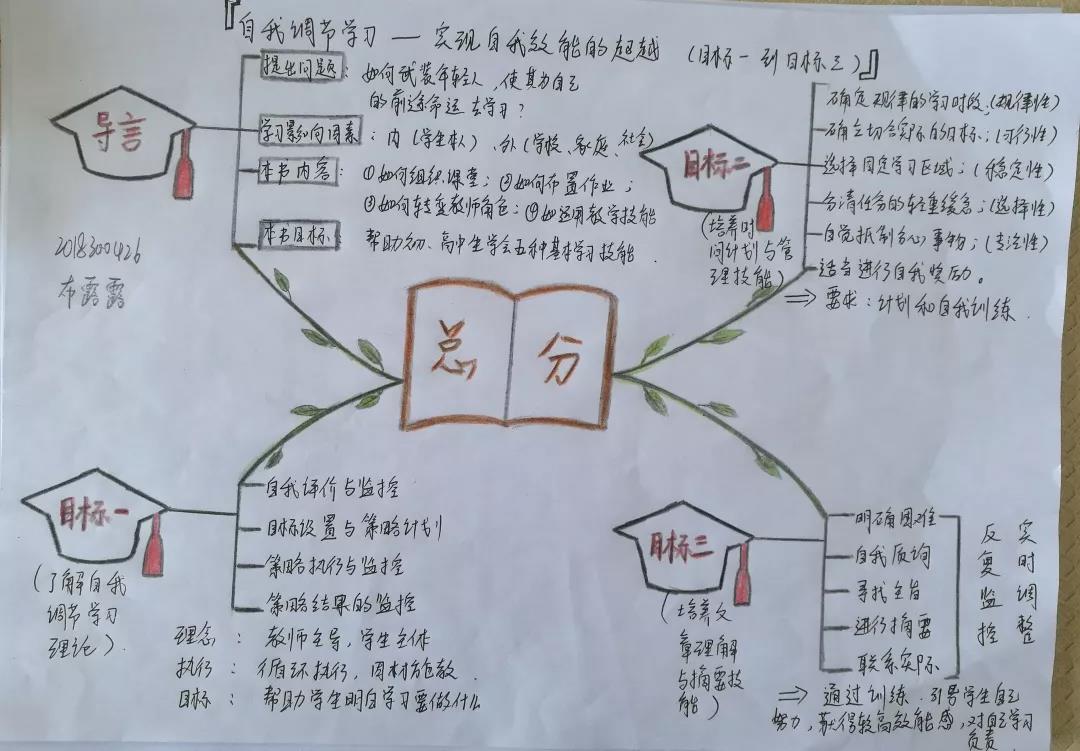 『自我调节学习 — 实现自我效能的超越 (目标一到目标三)』
导言
提出问题：如何武装年轻人，使其为自己
的前途命运去学习？
学习影响因素：内(学生本人)、外(学校、家庭、社会)
本书内容：①如何组织课堂；②如何布置作业；
③如何转变教师角色；④如何运用教学技能
本书目标 帮助初、高中生学会五种基本学习技能.
2018300426
布露露
目标二
(培养时
间计划与管
理技能)
确定规律的学习时段；(规律性)
确立切合实际的目标；(可行性)
选择固定学习区域；(稳定性)
分清任务的轻重缓急；(选择性)
自觉抵制分心事物；(专注性)
适当进行自我奖励。
⇒ 要求：计划和自我训练.
总 分
目标一
(了解自我
调节学习
理论).
自我评价与监控
目标设置与策略计划
策略执行与监控
策略结果的监控
理念：教师主导，学生主体
执行：循环执行，因材施教.
目标：帮助学生明白学习要做什么
目标三
(培养文
章理解
与摘要技
能)
明确困难
自我质询
寻找主旨
进行摘要
联系实际
反复监控
实时调整
⇒ 通过训练.引导学生自己
努力，获得较高效能感，对自己学习
负责